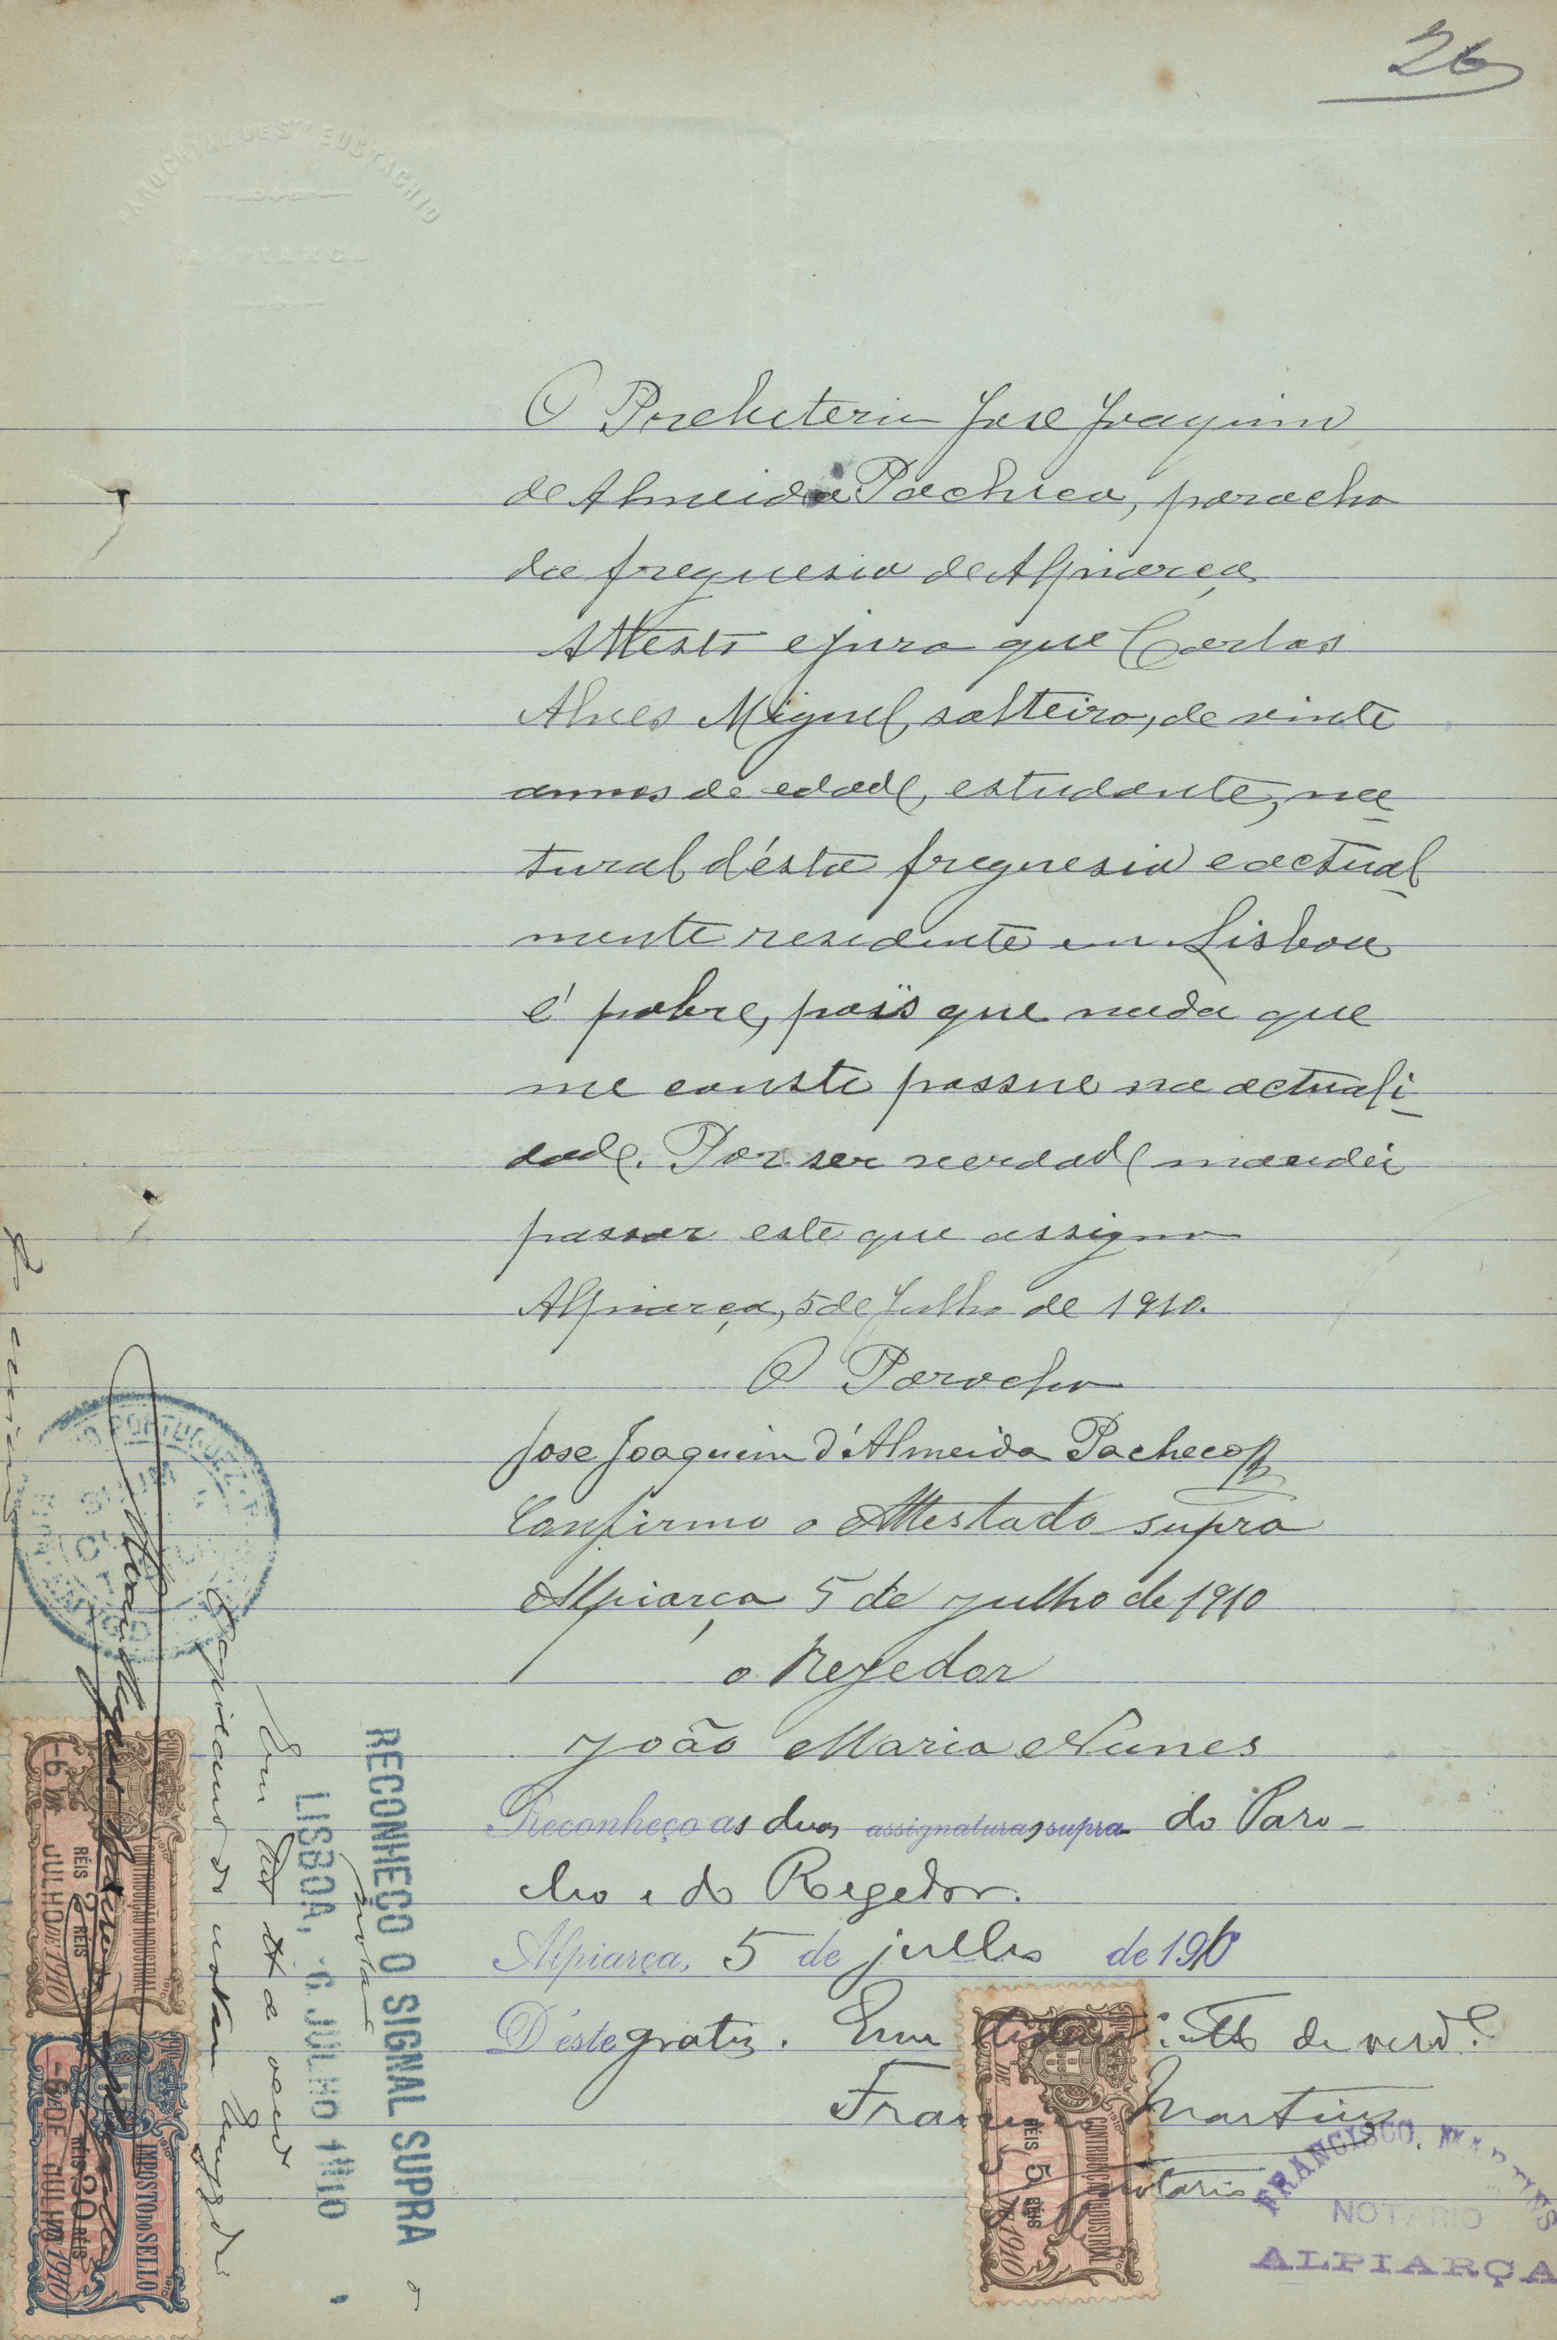 26
PAROCHIAL DE STO EUSTACHIO
ALPIARÇA
O Presbiterio Jose Joaquim
de Almeida Pacheco, parocho
da freguesia de Alpiarça
Attesto e juro que Carlos
Alves Miguel, solteiro, de vinte
annos de edade, estudante, na
tural d'ésta freguesia e actual
mente residente em Lisboa
é pobre, pois que nada que
me conste possue na actuali
dade. Por ser verdade mandei
passar este que assigno
Alpiarça, 5 de Julho de 1910.
O Parocho
Jose Joaquim d'Almeida Pacheco
Confirmo o Attestado supra
Alpiarça 5 de julho de 1910
o Regedor
João Maria Nunes
Reconheço as duas assignaturas supra do Paro-
cho e do Regedor.
Alpiarça, 5 de julho de 1910
D'este gratis. Em de verd.e
Francisco Martins
notario
CONTRIBUIÇÃO INDUSTRIAL
RÉIS 5 RÉIS
5 DE 7 DE 1910
FRANCISCO MARTINS
NOTARIO
ALPIARÇA
RECONHEÇO O SIGNAL SUPRA
LISBOA, -6 JULHO 1910
Em de verd
do notario
CONTRIBUIÇÃO INDUSTRIAL
RÉIS 2 RÉIS
-6 DE JULHO DE 1910
IMPOSTO DO SELLO
RÉIS 20 RÉIS
-6 DE JULHO 1910